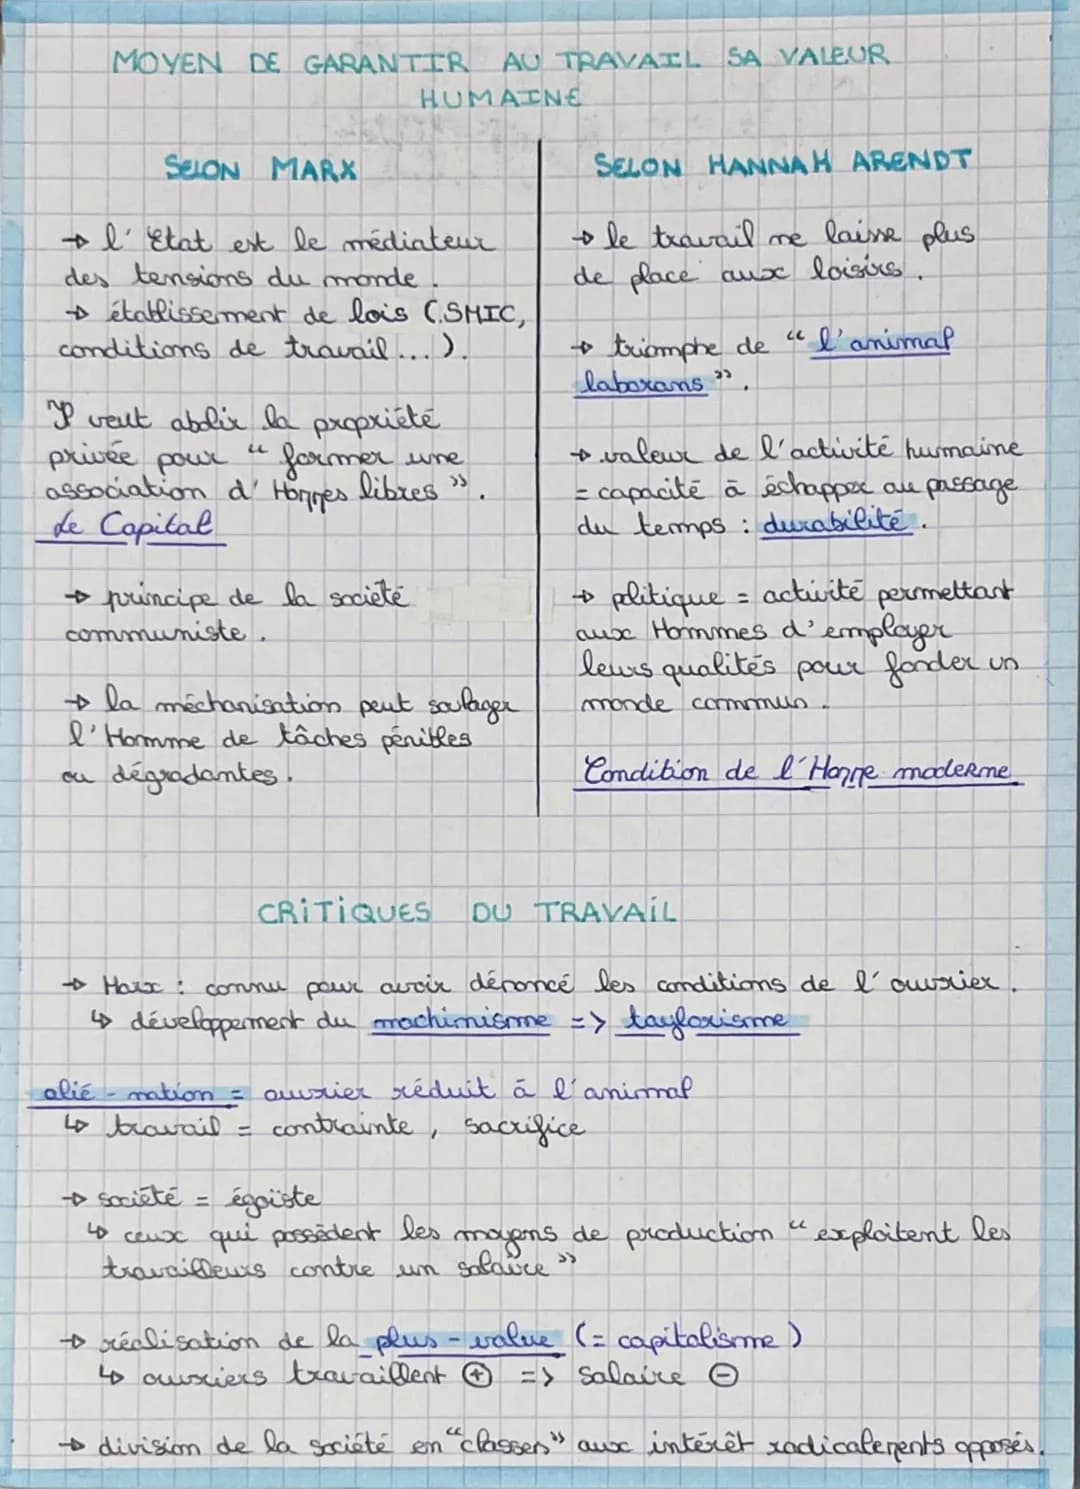 MOYEN DE GARANTIR AU TRAVAIL SA VALEUR
HUMAINE
SELON MARX
→ l'Etat est le médiateur
des tensions du monde.
→ établissement de lois (SMIC,
conditions de travail...).
Il veut abolir la propriété
privée pour "former une
association d'Hommes libres".
Le Capital
→ principe de la société
communiste.
→ la méchanisation peut soulager
l'Homme de tâches pénibles
ou dégradantes.
SELON HANNAH ARENDT
→ le travail ne laisse plus
de place aux loisirs.
→ triomphe de "l'animal
laborans".
→ valeur de l'activité humaine
= capacité à échapper au passage
du temps : durabilité.
→ politique = activité permettant
aux Hommes d'employer
leurs qualités pour fonder un
monde commun.
Condition de l'Homme moderne
CRITIQUES DU TRAVAIL
→ Marx : connu pour avoir dénoncé les conditions de l'ouvrier.
↳ développement du machinisme => taylorisme
alié-nation = ouvrier réduit à l'animal
↳ travail = contrainte, sacrifice
→ société = égoïste
↳ ceux qui possèdent les moyens de production "exploitent les
travailleurs contre un salaire"
→ réalisation de la plus-value (= capitalisme)
↳ ouvriers travaillent ⊕ => salaire ⊖
→ division de la société en "classes" aux intérêt radicalements opposés.